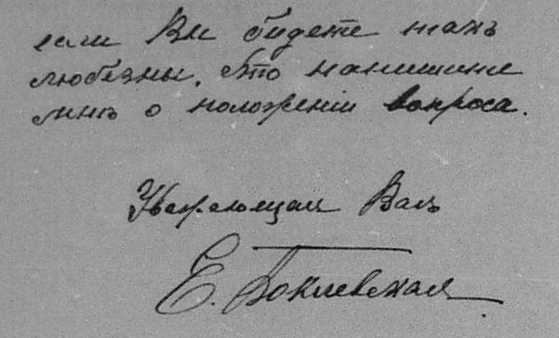 если Вы будете такъ
любезны, что напишите
мнѣ о положеніи вопроса.
Уважающая Васъ
Е. Бокиевская